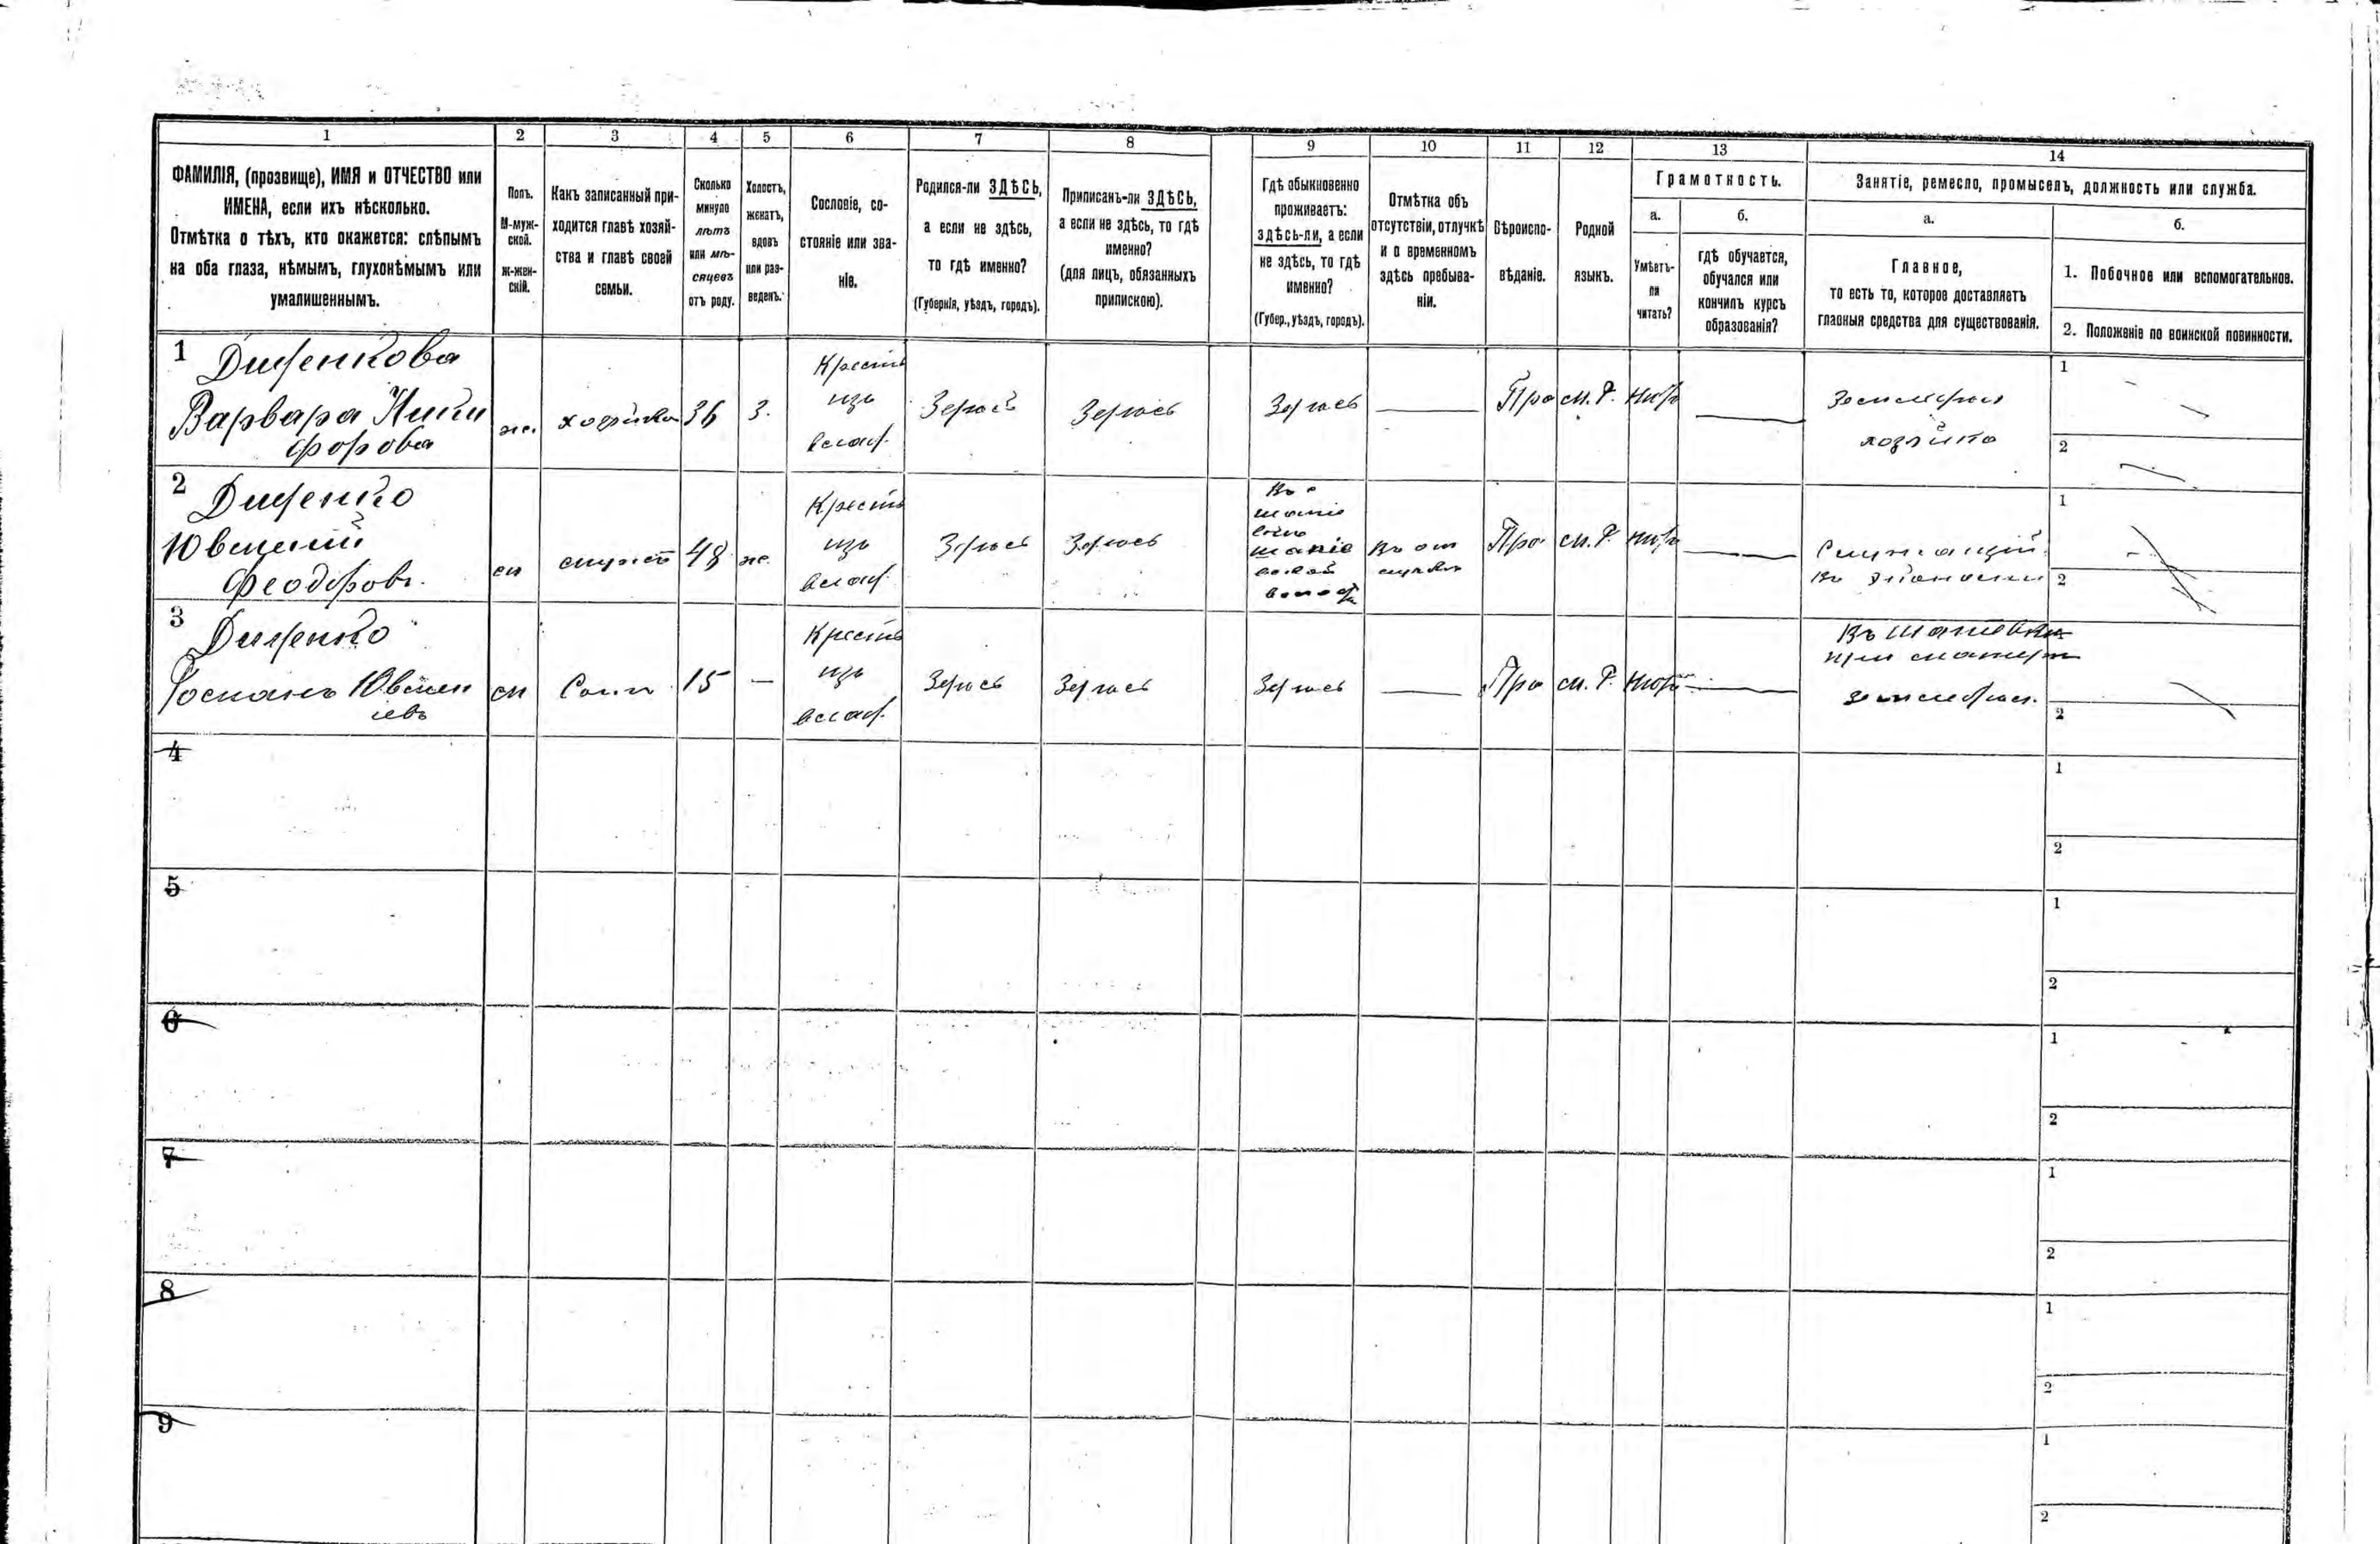 1
2
3
4
5
6
7
8
9
10
11
12
13
14
ФАМИЛІЯ, (прозвище), ИМЯ и ОТЧЕСТВО или
ИМЕНА, если ихъ нѣсколько.
Отмѣтка о тѣхъ, кто окажется: слѣпымъ
на оба глаза, нѣмымъ, глухонѣмымъ или
умалишеннымъ.
Полъ.
М-муж-
ской.
ж-жен-
скій.
Какъ записанный при-
ходится главѣ хозяй-
ства и главѣ своей
семьи.
Сколько
минуло
лѣтъ
или мѣ-
сяцевъ
отъ роду.
Холостъ,
женатъ,
вдовъ
или раз-
веденъ.
Сословіе, со-
стояніе или зва-
ніе.
Родился-ли ЗДѢСЬ,
а если не здѣсь,
то гдѣ именно?
(Губернія, уѣздъ, городъ).
Приписанъ-ли ЗДѢСЬ,
а если не здѣсь, то гдѣ
именно?
(для лицъ, обязанныхъ
припискою).
Гдѣ обыкновенно
проживаетъ:
здѣсь-ли, а если
не здѣсь, то гдѣ
именно?
(Губер., уѣздъ, городъ).
Отмѣтка объ
отсутствіи, отлучкѣ
и о временномъ
здѣсь пребыва-
ніи.
Вѣроиспо-
вѣданіе.
Родной
языкъ.
Грамотность.
а.
Умѣетъ-
ли
читать?
б.
гдѣ обучается,
обучался или
кончилъ курсъ
образованія?
Занятіе, ремесло, промыселъ, должность или служба.
а.
Главное,
то есть то, которое доставляетъ
главныя средства для существованія.
б.
1. Побочное или вспомогательное.
2. Положеніе по воинской повинности.
1
Дищенкова
Варвара Ники
форова
ж.
хозяйка
36
З.
Крестья
изъ
владѣ.
Здѣсь
Здѣсь
Здѣсь
—
Пра
м. Р.
нѣтъ
—
Земледѣл
хозяйка
1
2
2
Дищенко
Ювеналій
Феодоровъ.
м
мужъ
48
ж.
Крестья
изъ
владѣ.
Здѣсь
Здѣсь
Въ от
лучкѣ
Пра
м. Р.
нѣтъ
—
Служащій
въ экономіи
1
2
3
Дищенко
Романъ Ювенал
іевъ
м
Сынъ
15
—
Крестья
изъ
владѣ.
Здѣсь
Здѣсь
Здѣсь
—
Пра
м. Р.
—
при матери
земледѣл.
2
4
1
2
5
1
2
6
1
2
7
1
2
8
1
2
9
1
2